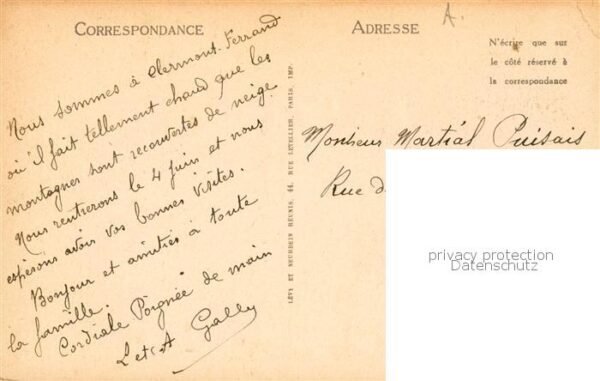 CORRESPONDANCE
Nous sommes à Clermont-Ferrand
où il fait tellement chaud que les
montagnes sont recouvertes de neige.
Nous rentrerons le 4 juin et nous
espérons avoir vos bonnes visites.
Bonjour et amitiés à toute
la famille.
Cordiale Poignée de main
L et A Gally
LÉVY ET NEURDEIN RÉUNIS, 44, RUE LETELLIER, PARIS, IMP.
ADRESSE
A.
N'écrire que sur
le côté réservé à
la correspondance
Monsieur Martial Puisais
Rue d
privacy protection
Datenschutz